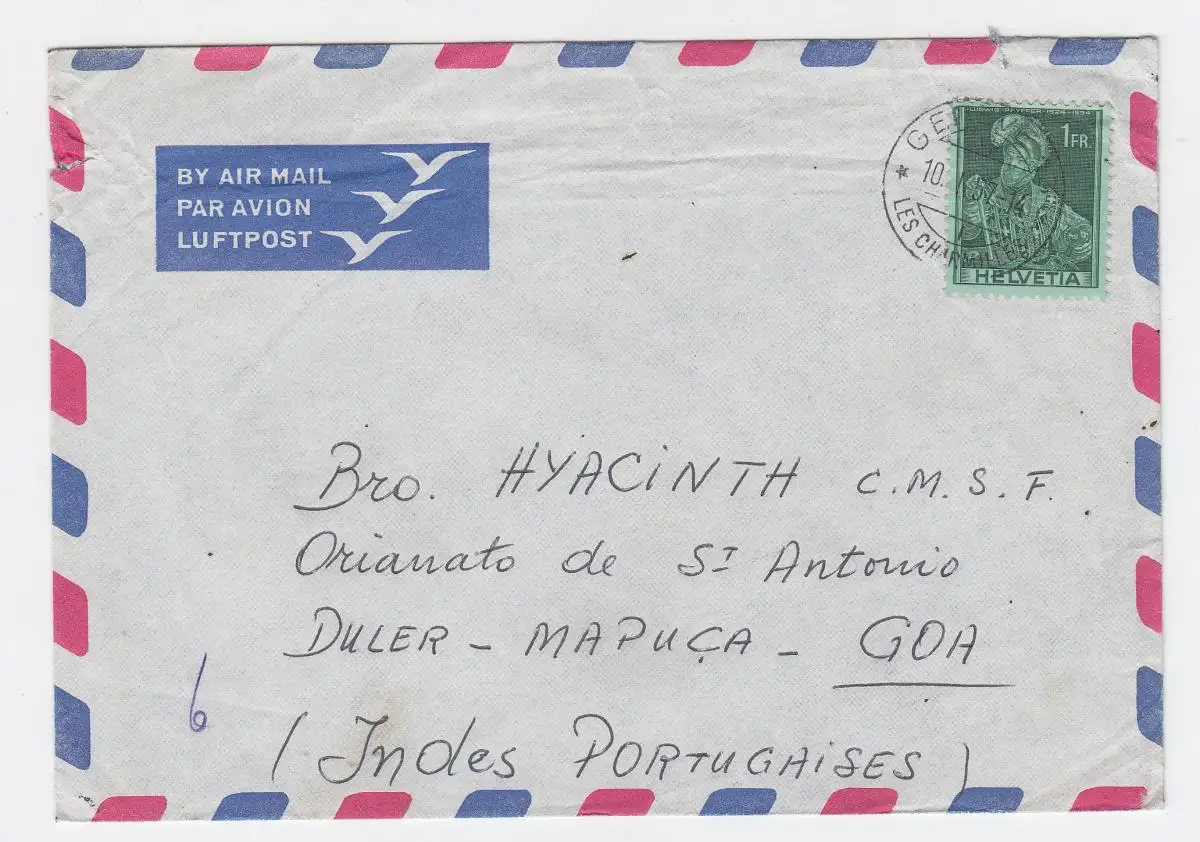 BY AIR MAIL
PAR AVION
LUFTPOST
LUDWIG PFYFFER · 1524-1594
1 FR.
HELVETIA
LES CHARMILLES
Bro. HYACINTH C.M.S.F.
Orianato de ST Antonio
DULER - MAPUÇA - GOA
6
(Indes PORTUGAISES)